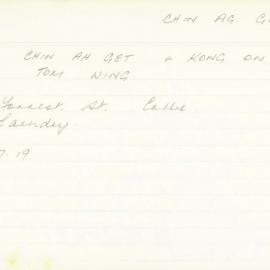 CHIN AG. G
CHIN AH GET & KONG ON
TOM WING
Forrest. St. Collie
Laundry.
7.19